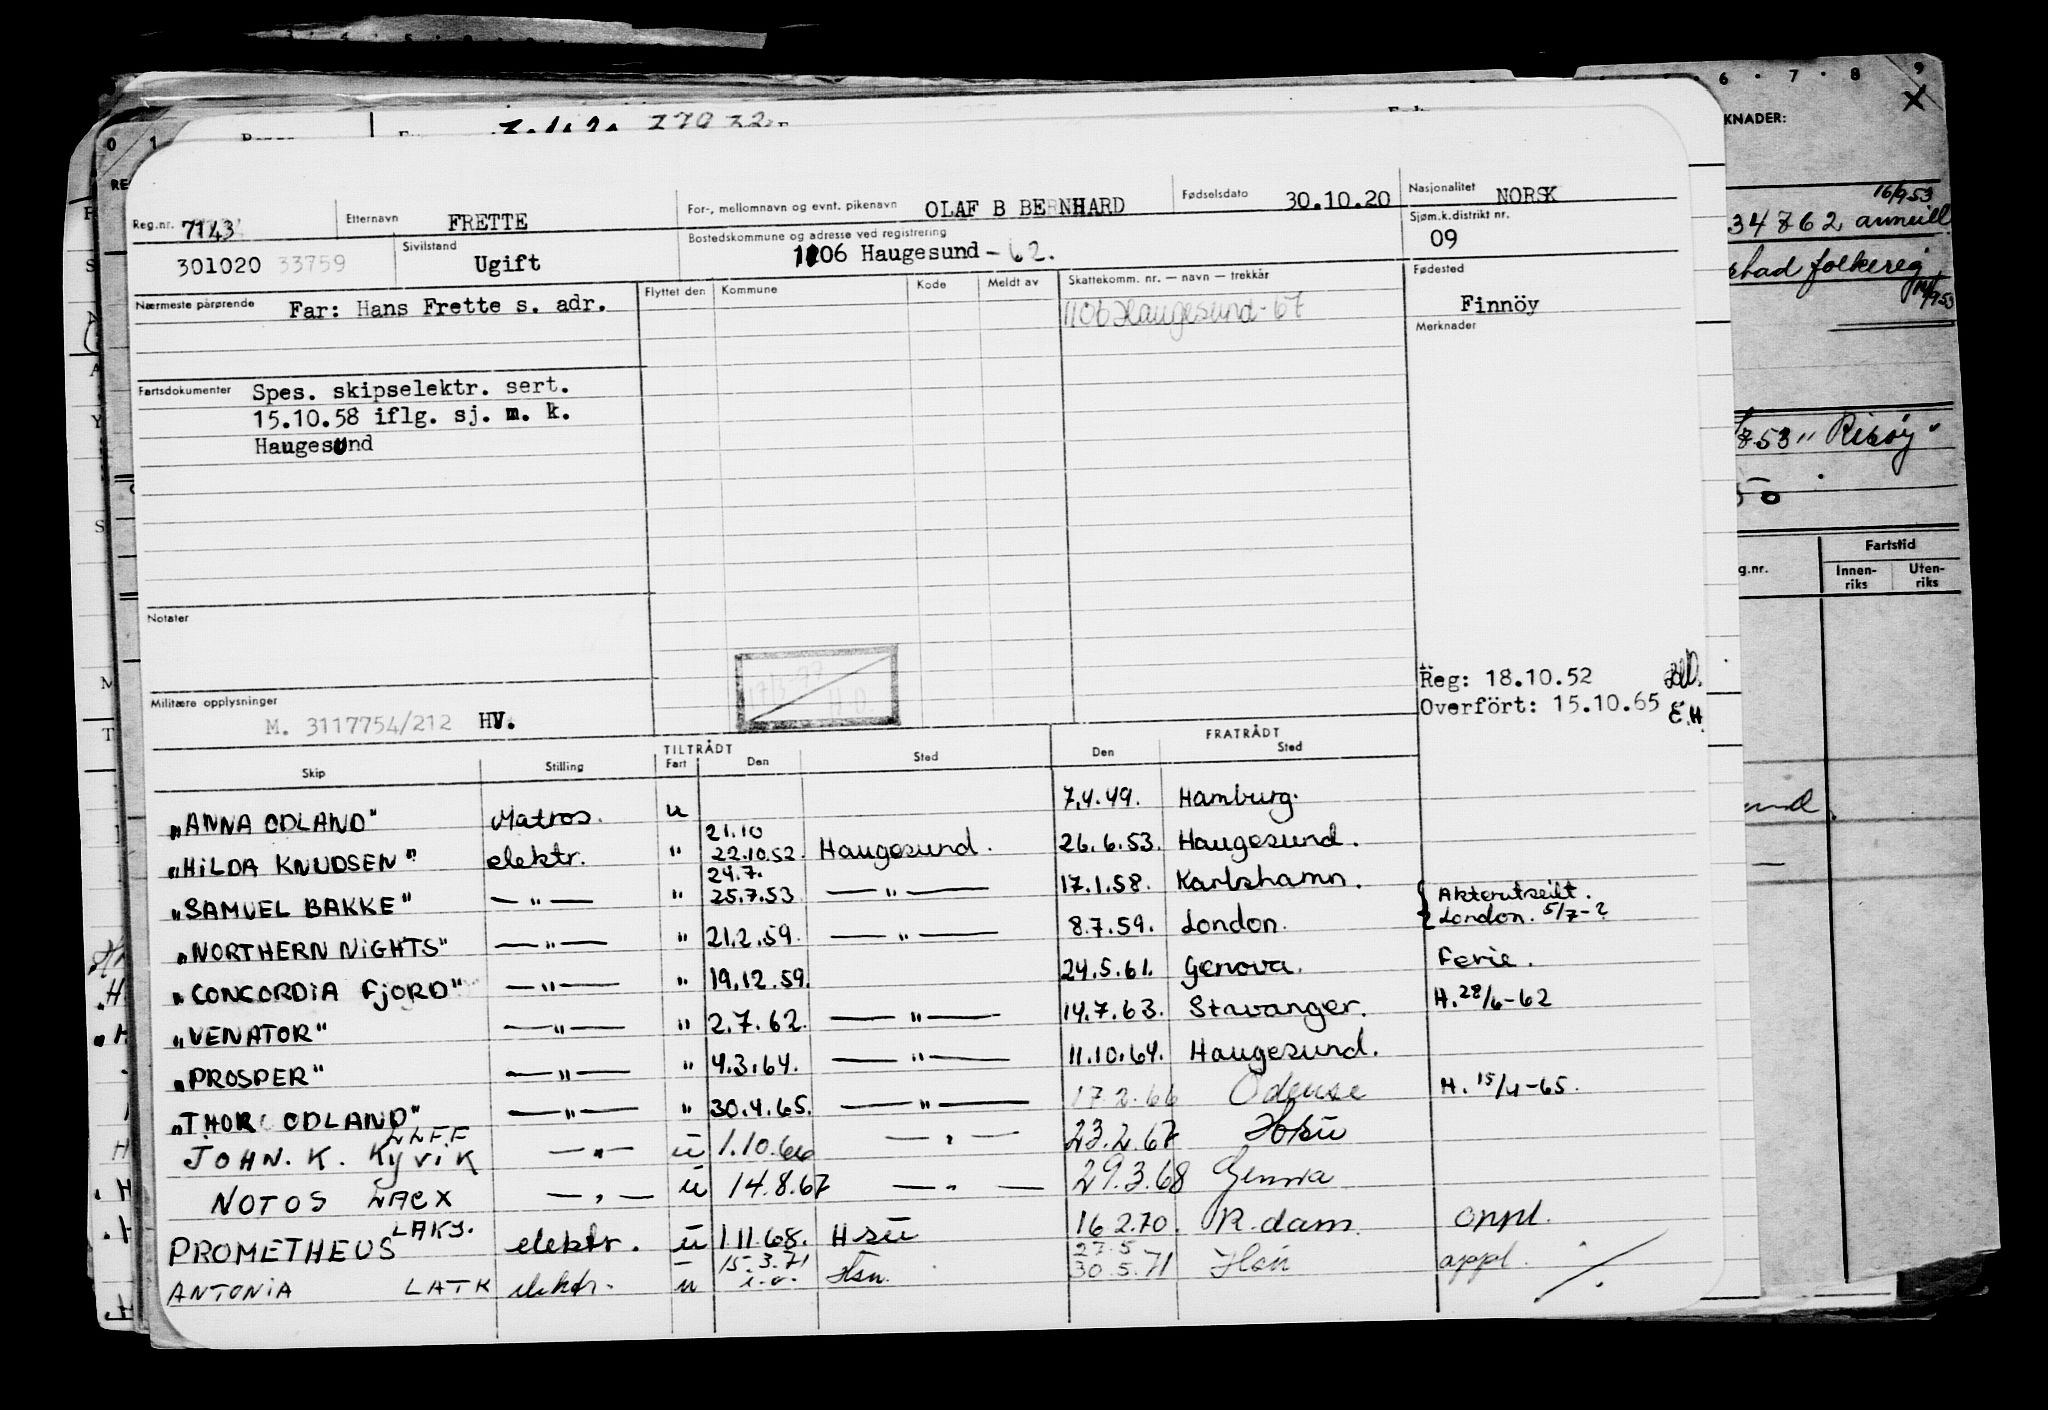 6 · 7 · 8 9
X
KNADER:
0 1
Reg.nr. 7143
Etternavn FRETTE
For-, mellomnavn og evnt. pikenavn OLAF B BERNHARD
Fødselsdato 30.10.20
Nasjonalitet NORSK
301020 33759
Sivilstand Ugift
Bostedskommune og adresse ved registrering 1106 Haugesund - 62.
Sjøm.k.distrikt nr. 09
Nærmeste pårørende Far: Hans Frette s. adr.
Flyttet den Kommune Kode Meldt av
Skattekomm. nr. — navn — trekkår
1106 Haugesund-67
Fødested Finnöy
Merknader
Fartsdokumenter Spes. skipselektr. sert.
15.10.58 iflg. sj. m. k.
Haugesund
Notater
Militære opplysninger
M. 3117754/212 HV.
Reg: 18.10.52
Overfört: 15.10.65 E.H
TILTRÅDT FRATRÅDT
Skip Stilling Fart Den Sted Den Sted
"ANNA ODLAND" Matros. u 7.4.49. Hamburg.
"HILDA KNUDSEN" elektr. " 21.10 22.10.52. Haugesund. 26.6.53. Haugesund.
"SAMUEL BAKKE" — " — " 24.7. 25.7.53 — " — 17.1.58. Karlshamn.
"NORTHERN NIGHTS" — " — " 21.2.59. — " — 8.7.59. London. Akterutseilt. London. 5/7-?
"CONCORDIA FJORD" — " — " 19.12.59. 24.5.61. Genova. Ferie.
"VENATOR" — " — " 2.7.62. — " — 14.7.63. Stavanger. H. 28/6-62
"PROSPER" — " — " 4.3.64. — " — 11.10.64. Haugesund.
"THOR ODLAND" — " — " 30.4.65. — " — 17.2.66 Odense H. 15/4-65.
JOHN. K. KYVIK LLFF — " — u 1.10.66 — " — 23.2.67
NOTOS LACX — " — u 14.8.67 — " — 29.3.68 Genova
PROMETHEUS LAKJ. elektr. u 1.11.68. Hsu 16.2.70. R.dam oppl.
ANTONIA LATK elektr. u 15.3.71 Hsn. 27.5 30.5.71 Hsn oppl.
16/9 53
34862 anmeld
folkereg
853 "Risöy"
g.nr.
Fartstid
Innen-
riks
Uten-
riks